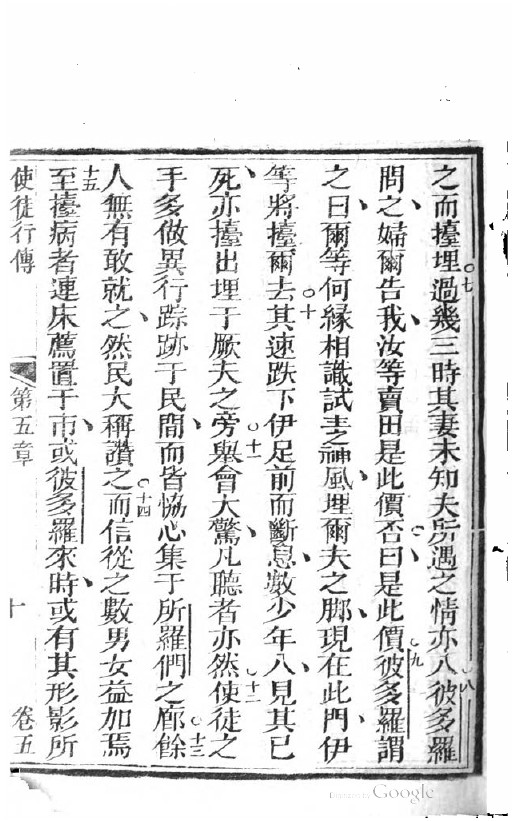 之而擡埋○七過幾三時其妻未知夫所遇之情亦入○八彼多羅
問之婦爾告我汝等賣田是此價否曰是此價○九彼多羅謂
之曰爾等何緣相議試主之神風埋爾夫之脚現在此門伊
等將擡爾去○十其速跌下伊足前而斷息數少年入見其已
死亦擡出埋于厥夫之旁○十一舉會大驚凡聽者亦然○十二使徒之
手多做異行踪跡于民間而皆恊心集于所羅們之廊○十三餘
人無有敢就之然民大稱讚之○十四而信從之數男女益加焉
十五至擡病者連床薦置于市或彼多羅來時或有其形影所
使徒行傳 第五章 十 卷五
Digitized by Google